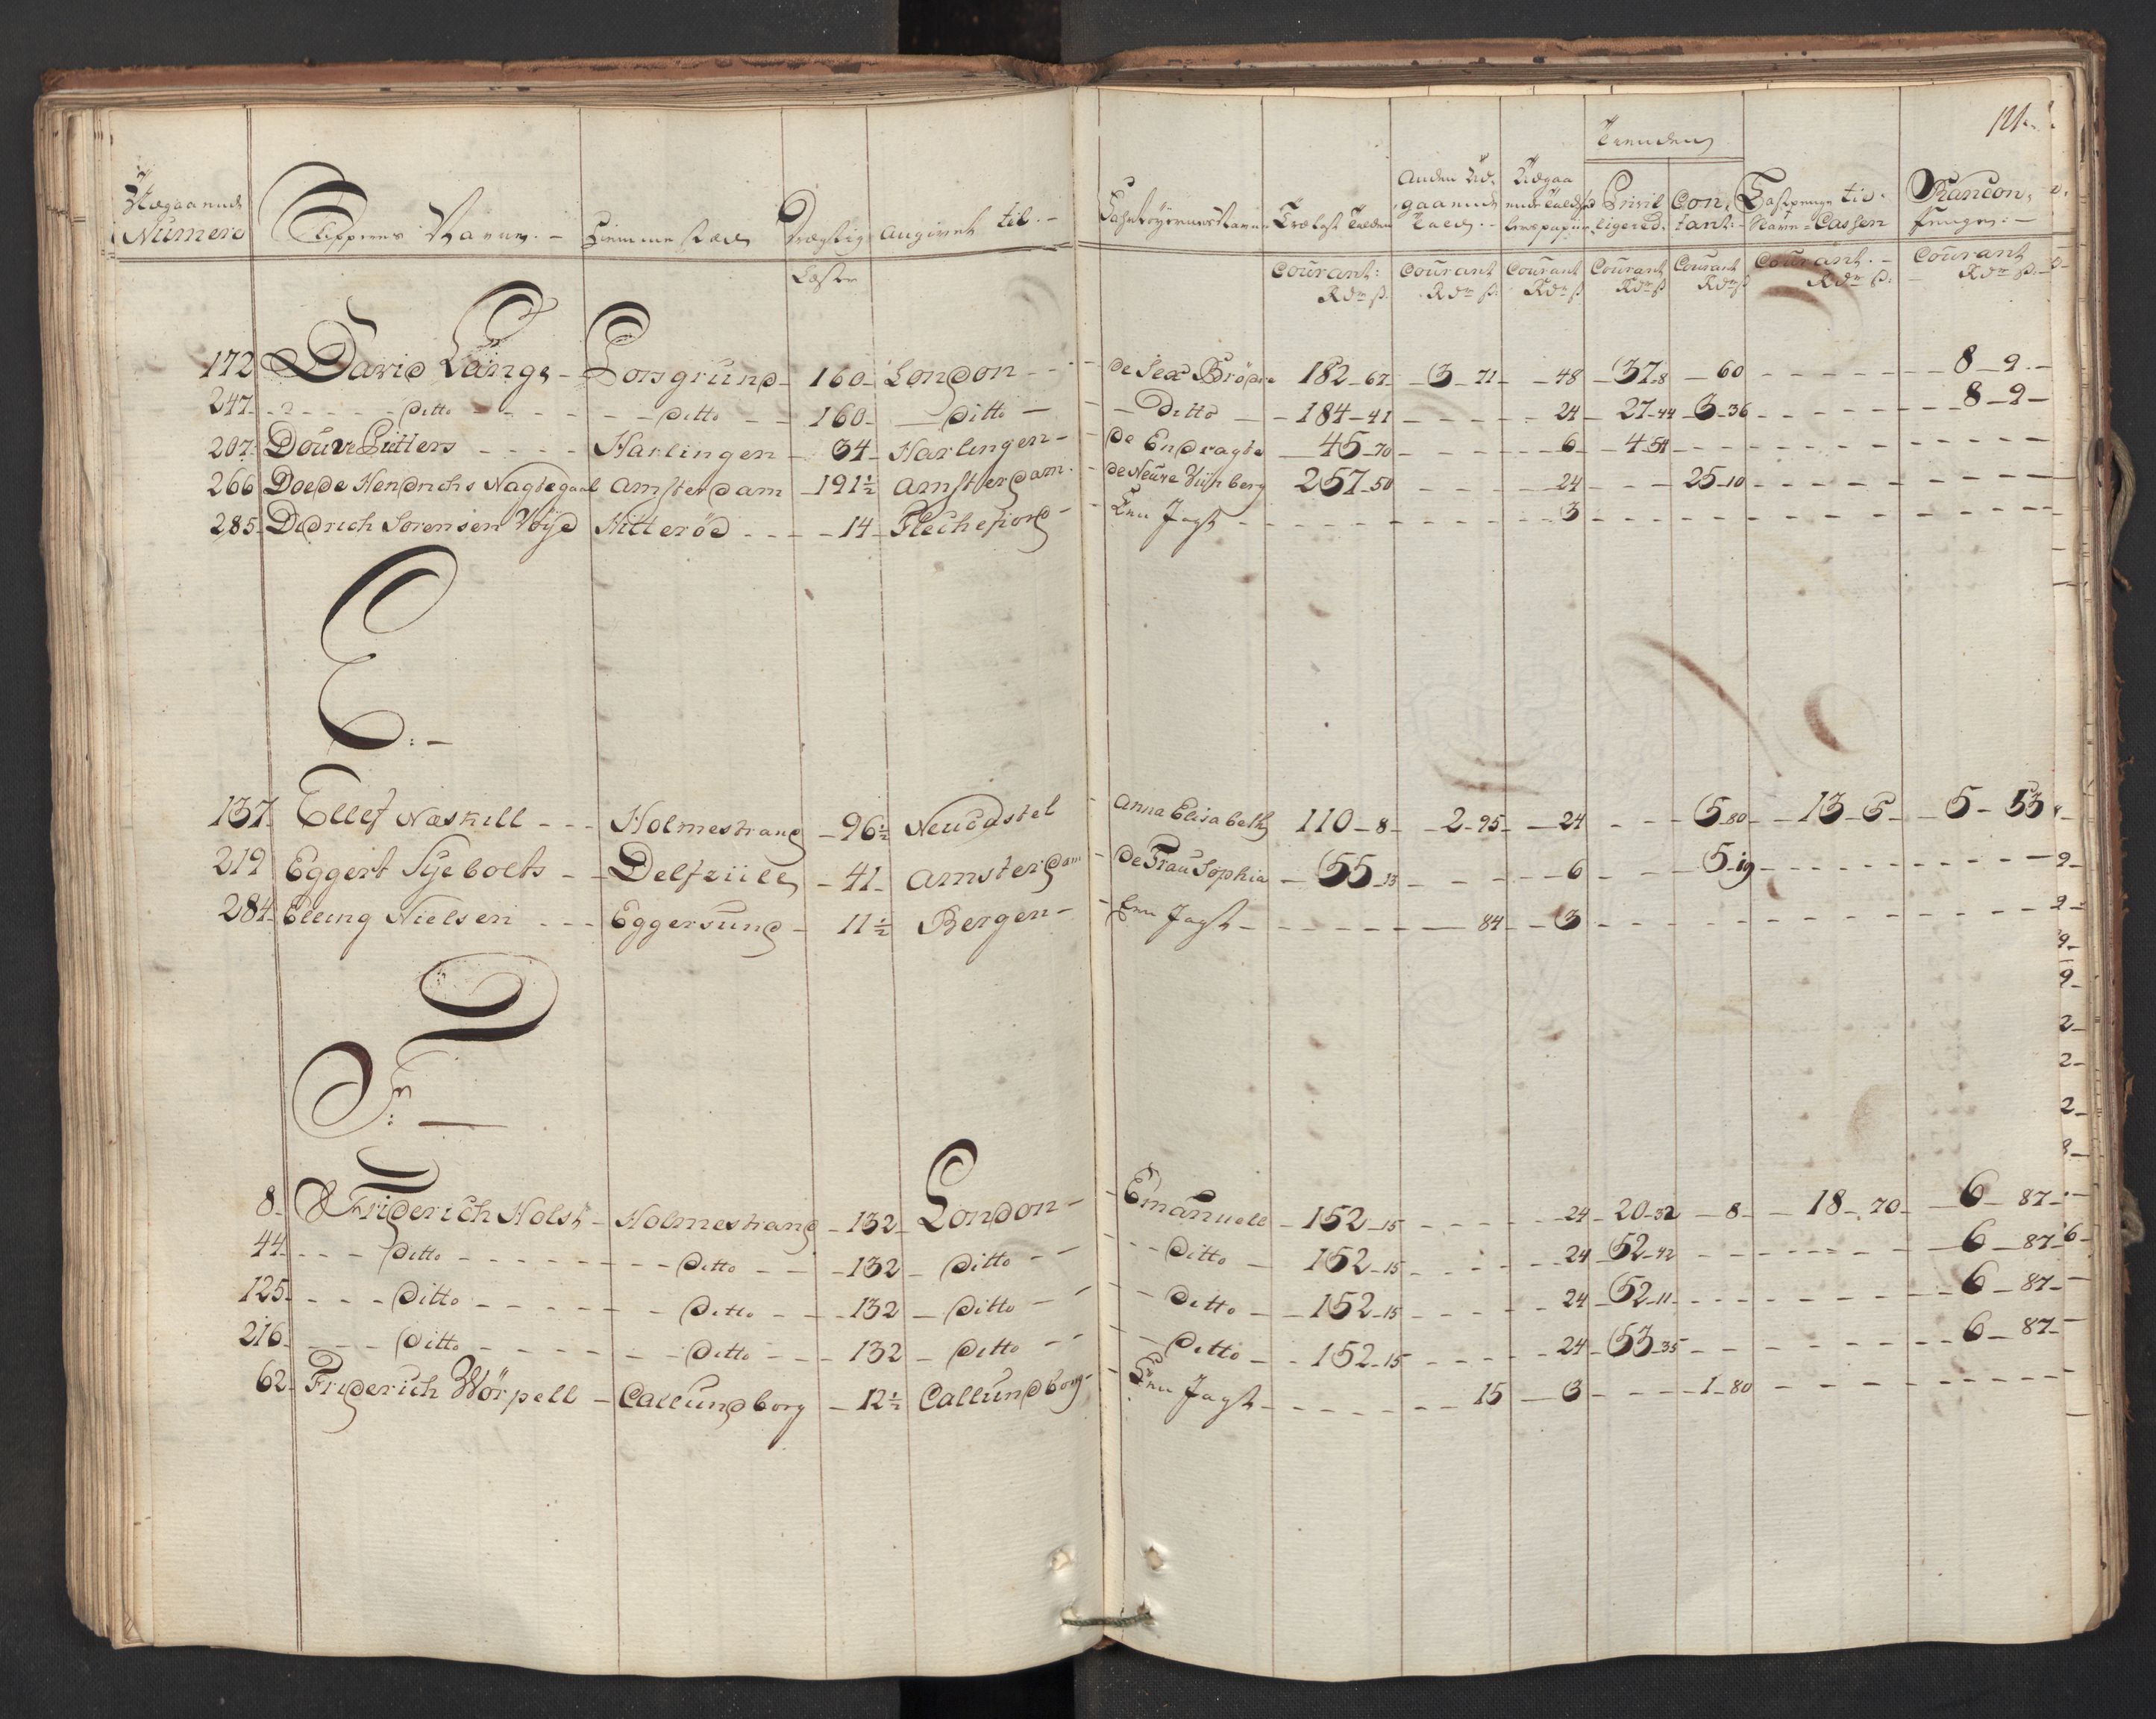 121.
Udgaaende Numero Skipperens Navne. – Hiemmestæd Drægtig Angivet til. – Fahrtøyernes Navne Trælast Tolden Anden Ud-gaaende Told. – Udgaaende Tienden Privilligered. Contant: Lastpenge til Havne-Cassen Rancon-Penge. –
Læster Courant: Rdr ß. Courant Rdr ß. Courant Rdr ß Courant Rdr ß Courant Rdr ß Courant. – Rdr ß: Courant Rdr ß. –
172 David Lange – Porsgrund – 160 – London – de Sex Brödre 182 – 67 – 3 – 71 – 48 – 37 – 8 – 60 – 8 – 9 –
247 – ditto – ditto – 160 – ditto – Ditto – 184 – 41 – 24 – 27 – 44 – 3 – 36 – 8 – 9 –
207 Douve Sitters – Harlingen – 34 – Harlingen – de Endragte – 45 – 70 – 6 – 4 – 54 –
266 Doede Hendrichs Nagtegaal Amsterdam – 191½ Amsterdam – de Neuve 257 – 50 – 24 – 25 – 10 –
285 – Didrich Sorensen Höye Hitteröe – 14 – Flechefiord – Een Jagt – 3 –
E. –
137 Ellef Næskill – Holmestrand – 96½ Neucastel – Anna Elisabeth 110 – 8 – 2 – 95 – 24 – 5 – 80 – 13 – 5 – 5 – 53
219 Eggert Syebolts – Delfziile – 41 – Amsterdam – de Frau Sophia – 55 – 13 – 6 – 5 – 19 –
284 – Elling Nielsen – Eggersund – 11½ Bergen – Een Jagt – 84 – 3 –
F. –
8 – Friderich Holst – Holmestrand – 132 – London – Emanuell – 152 – 15 – 24 – 20 – 32 – 8 – 18 – 70 – 6 – 87 –
44 – ditto – ditto – 132 – ditto – ditto – 152 – 15 – 24 – 52 – 42 – 6 – 87 –
125 – ditto – ditto – 132 – ditto – ditto – 152 – 15 – 24 – 52 – 11 – 6 – 87 –
216 – ditto – ditto – 132 – ditto – ditto – 152 – 15 – 24 – 53 – 35 – 6 – 87 –
62 – Friderich Wörpell – Callundborg – 12½ Callundborg – Een Jagt – 15 – 3 – 1 – 80 –